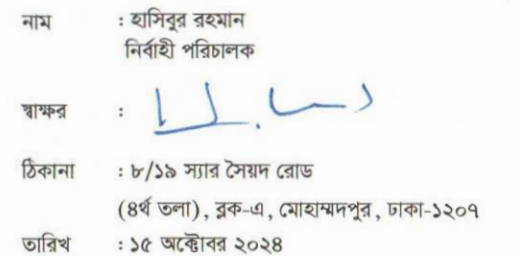 নাম : হাসিবুর রহমান
নির্বাহী পরিচালক
স্বাক্ষর :
ঠিকানা : ৮/১৯ স্যার সৈয়দ রোড
(৪র্থ তলা), ব্লক-এ, মোহাম্মদপুর, ঢাকা-১২০৭
তারিখ : ১৫ অক্টোবর ২০২৪